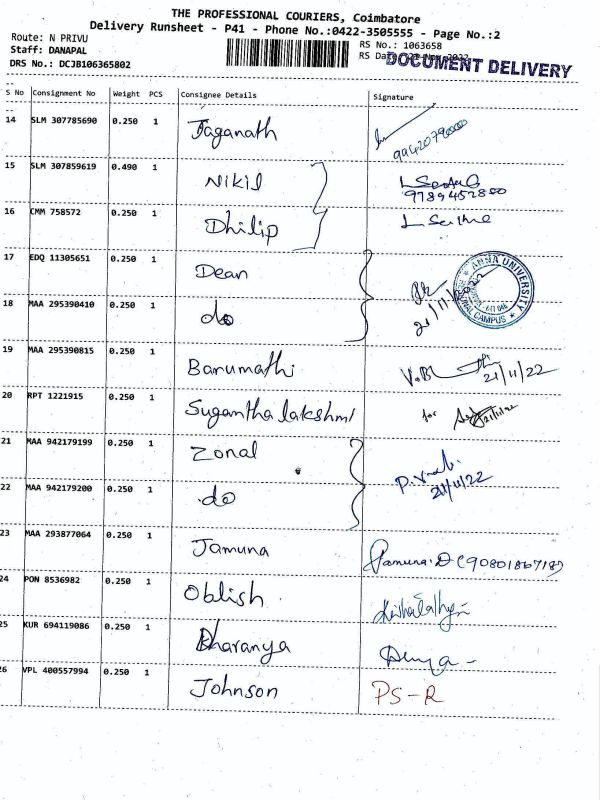 THE PROFESSIONAL COURIERS, Coimbatore
Delivery Runsheet - P41 - Phone No.:0422-3505555 - Page No.:2
Route: N PRIVU
Staff: DANAPAL
DRS No.: DCJB106365802
RS No.: 1063658
RS Date
DOCUMENT DELIVERY
S No Consignment No Weight PCS Consignee Details Signature
14 SLM 307785690 0.250 1 Jaganath
15 SLM 307859619 0.490 1 Nikil 9789452850
16 CMM 758572 0.250 1 Dhilip
17 EDQ 11305651 0.250 1 Dean 21/11/2022
ANNA UNIVERSITY
18 MAA 295390410 0.250 1 do
19 MAA 295390815 0.250 1 Barumathi 21/11/22
20 RPT 1221915 0.250 1 Sugantha lakshmi for 21/11/22
21 MAA 942179199 0.250 1 Zonal
22 MAA 942179200 0.250 1 do 21/11/22
23 MAA 293877064 0.250 1 Jamuna Jamuna.D
24 PON 8536982 0.250 1 Oblish
25 KUR 694119086 0.250 1 Dharanya
26 VPL 400557994 0.250 1 Johnson PS-R